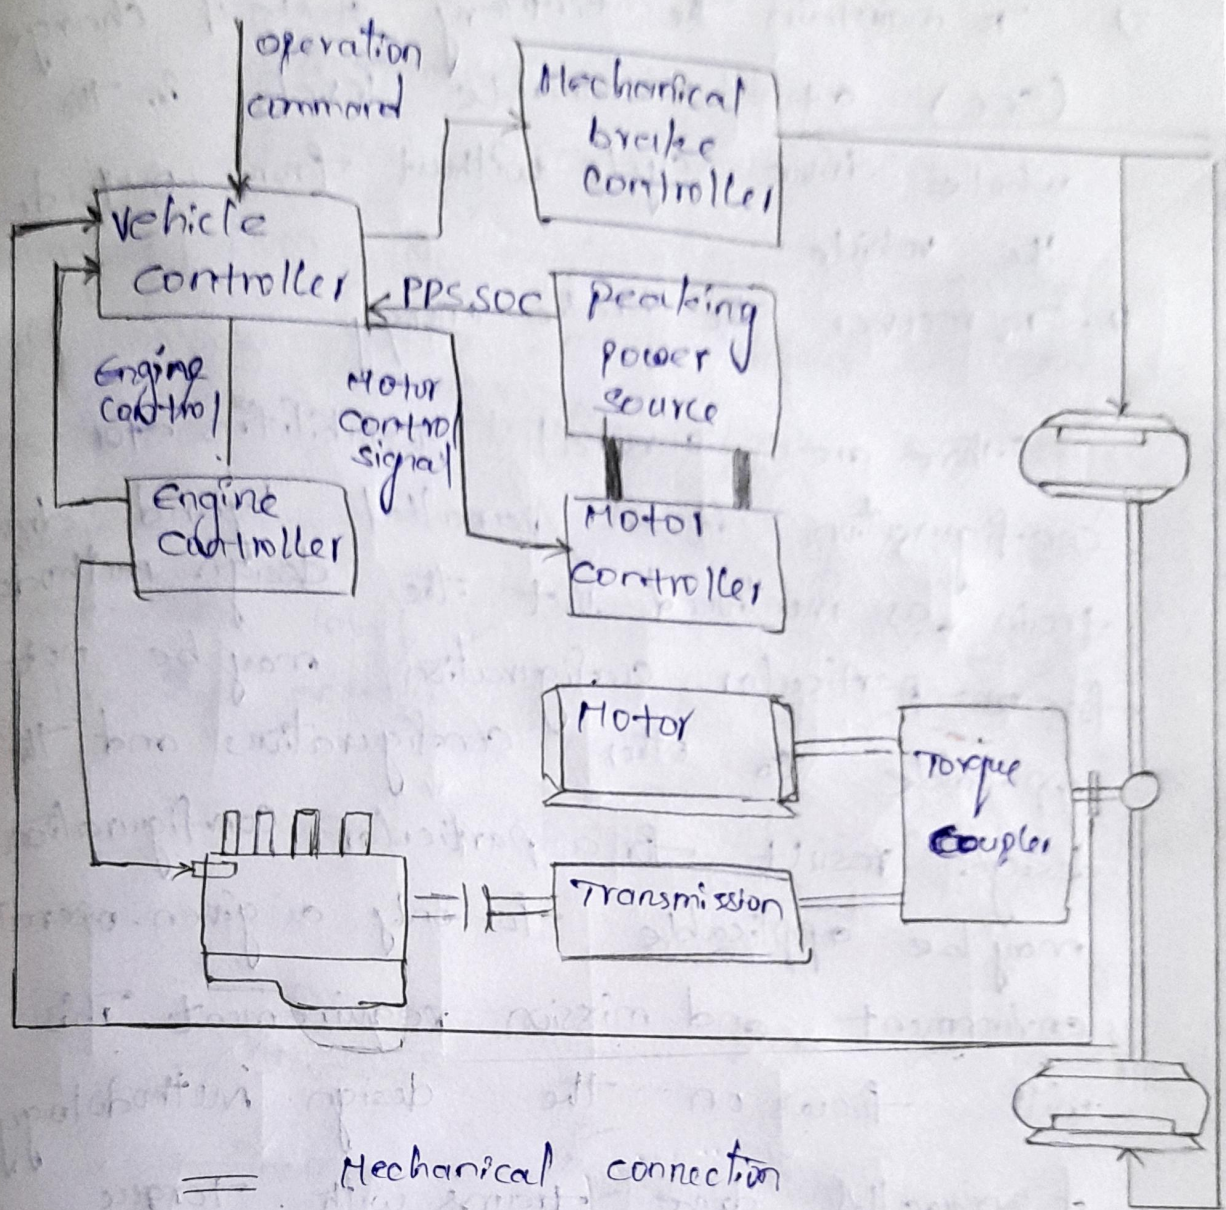 operation
command
Mechanical
brake
controller
Vehicle
controller
PPS SOC
Peaking
power
source
Engine
control
Motor
control
signal
Engine
controller
Motor
controller
Motor
Torque
Coupler
Transmission
Mechanical connection